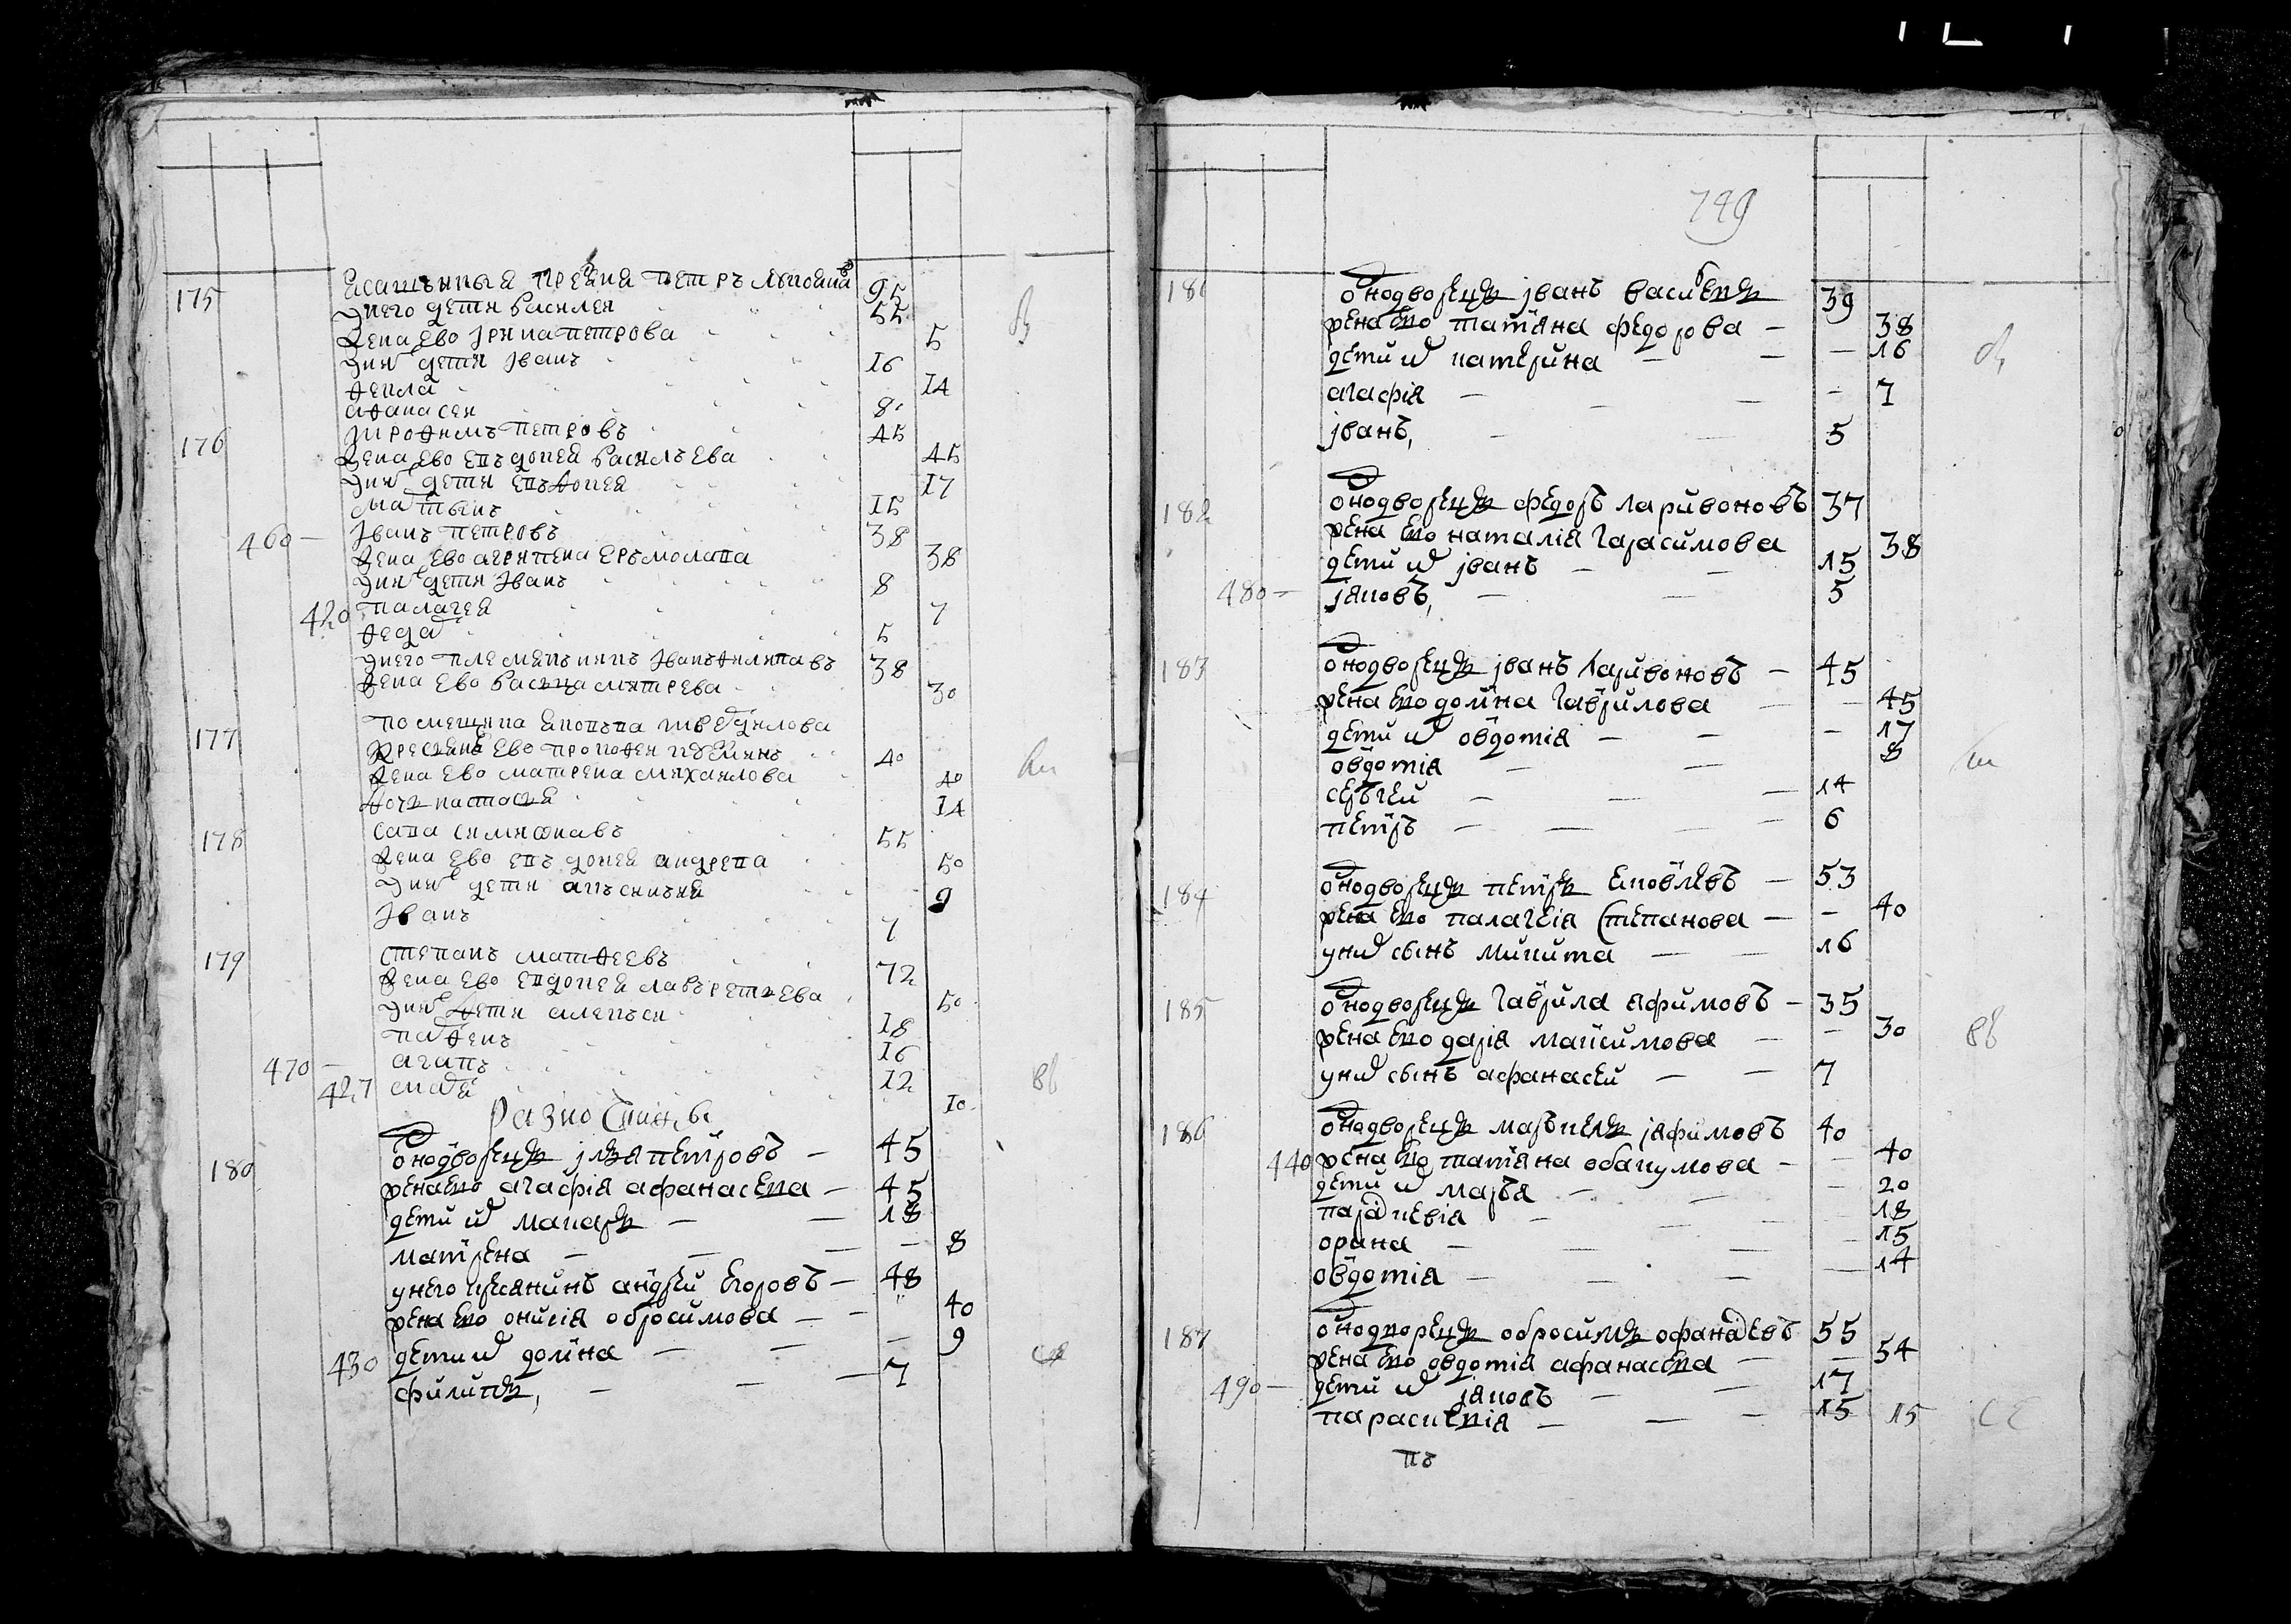 175 петръ 95
у него дети василей 55
жена ево ирина петрова 5
у них дети иванъ 16
фекла 14
афанасей 8
176 трофимъ петровъ 45
жена ево евъдокея василъева 45
у них дети евъдокея 17
мартынъ 15
460 — иванъ петровъ 38
жена ево агрипена еръмолаева 38
у них дети иванъ 8
420 палагея 7
федор 5
у него племенъникъ иванъ филипавъ 38
жена ево василиса митрева 30
помещика
177 крестьяне ево прокофей 40
жена ево матрена михаилова 40
дочь настасья 14
178 сава симионавъ 55
жена ево евъдокея андреева 50
у них дети анъсинья 9
иванъ 7
179 степанъ матфеевъ 72
жена ево евдокея лавърентьева 50
у них дети алексей 18
парфенъ 16
470 — агапъ 12
427 марья 10
Разночинцы
180 однодворецъ илья петровъ — 45
жена ево агафія афанасева — 45
дети их макаръ — — 18
матрена — — — 8
у него крестянинъ андрей егоровъ — 48
жена ево онисія обросимова — 40
430 дети их домна — — — 9
филипъ, — — — 7
749
181 однодворецъ іванъ васильевъ 39
жена ево татіяна федорова — 38
дети их катерина — — — 16
агафія — — — — 7
іванъ, — — 5
182 однодворецъ федоръ ларивоновъ 37
жена ево наталія гарасимова 38
дети их іванъ — — 15
480 — іяковъ, — — 5
183 однодворецъ іванъ ларивоновъ — 45
жена ево домна гаврилова — — 45
дети их овдотія — — — 17
овдотія — — 8
сергей — — — 14
петръ — — — — 6
184 однодворецъ петръ яковлевъ — 53
жена ево палагеія степанова — — 40
у них сынъ микита — — 16
185 однодворецъ гаврила яфимовъ — 35
жена ево дарія максимова — — 30
у них сынъ афанасей — — 7
186 однодворецъ маркелъ іяфимовъ 40
440 жена ево татіяна абакумова — — 40
дети их марья — — — 20
парасковія — — — 18
орина — — — — 15
овдотія — — — — 14
187 однодворецъ обросимъ офанасевъ 55
жена ево овдотія афанасева — — 54
490 — дети их іяковъ — — 17
парасковія — — — 15 15
въ